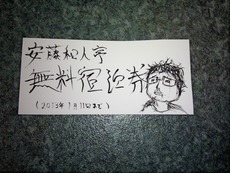 安藤和人亭
無料宿泊券
(2013年1月11日まで)